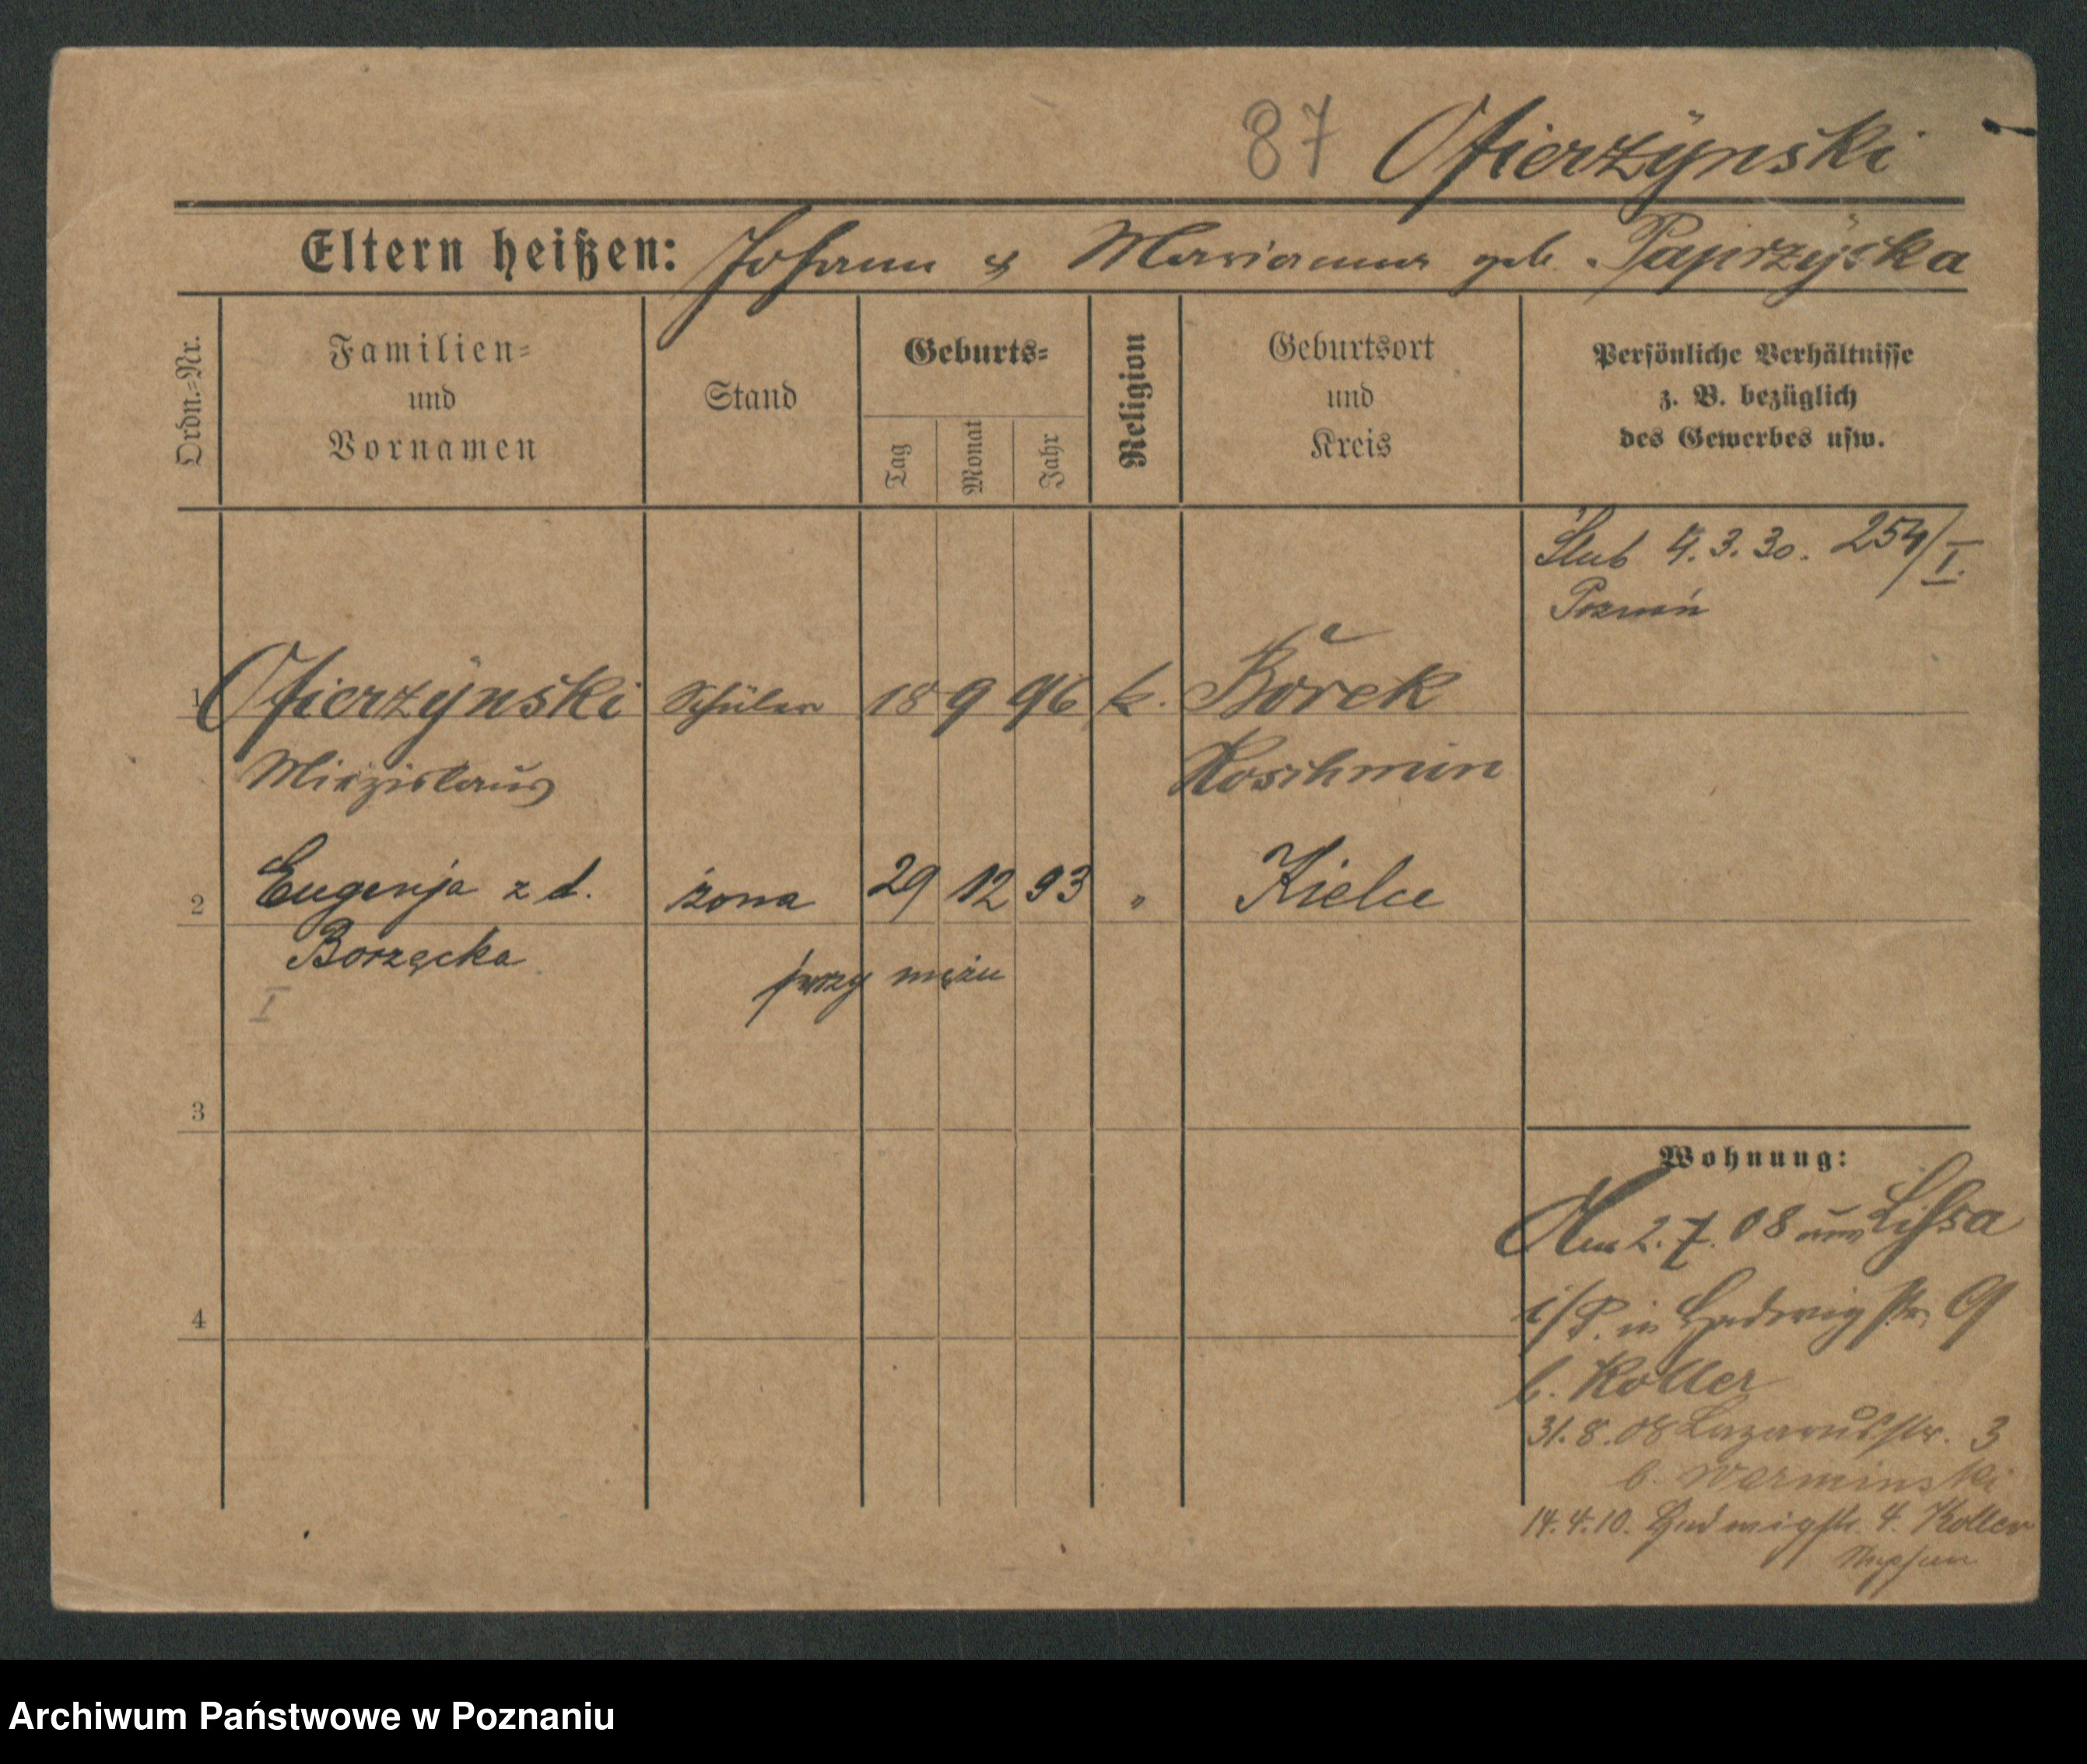 87 Ofierzÿnski
Eltern heißen: Johann & Marianna geb. Paprzÿcka
Ordn.=Nr.
Familien=
und
Vornamen
Stand
Geburts=
Tag
Monat
Jahr
Religion
Geburtsort
und
Kreis
Persönliche Verhältnisse
z. B. bezüglich
des Gewerbes usw.
Ślub 4.3.30. 254/I.
Poznań
1 Ofierzÿnski Schüler 18 9 96 k. Borek
Miezislaus Koschmin
2 Eugenja z d. żona 29 12 93 " Kielce
Borzęcka
przy mężu
I
3
4
Wohnung:
Am 2.7.08 aus Lissa
i/P. in Hedwigstr. 9
b. Koller
31.8.08 Lazarusstr. 3
b. Werminski
14.4.10. Hedwigstr. 4. Koller
Archiwum Państwowe w Poznaniu